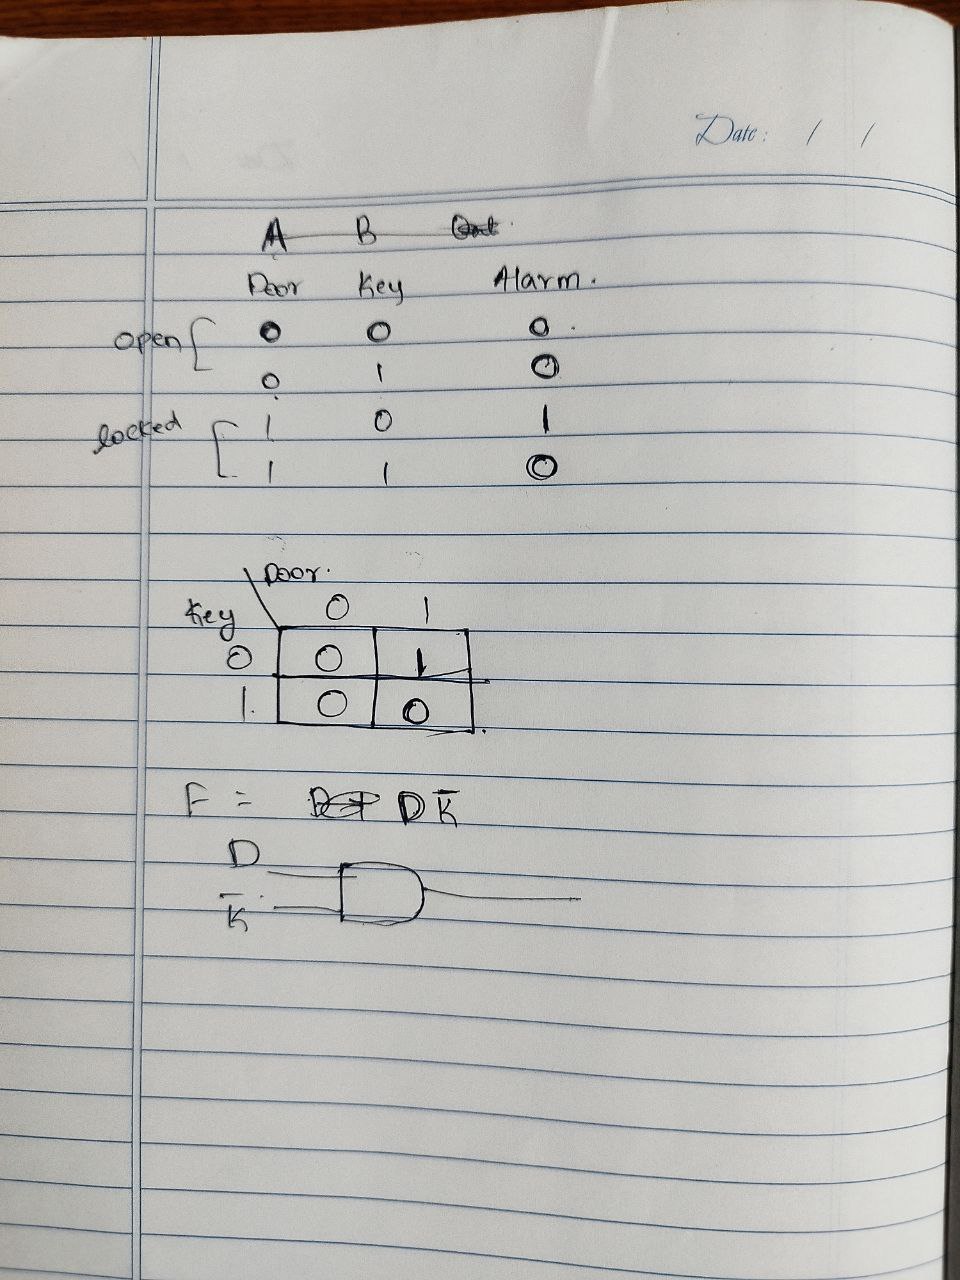 Date: / /
A B Out
Door Key Alarm.
open 0 0 0
0 1 0
locked 1 0 1
1 1 0
Door.
Key 0 1
0 0 1
1. 0 0
F = D K̅
D
K̅